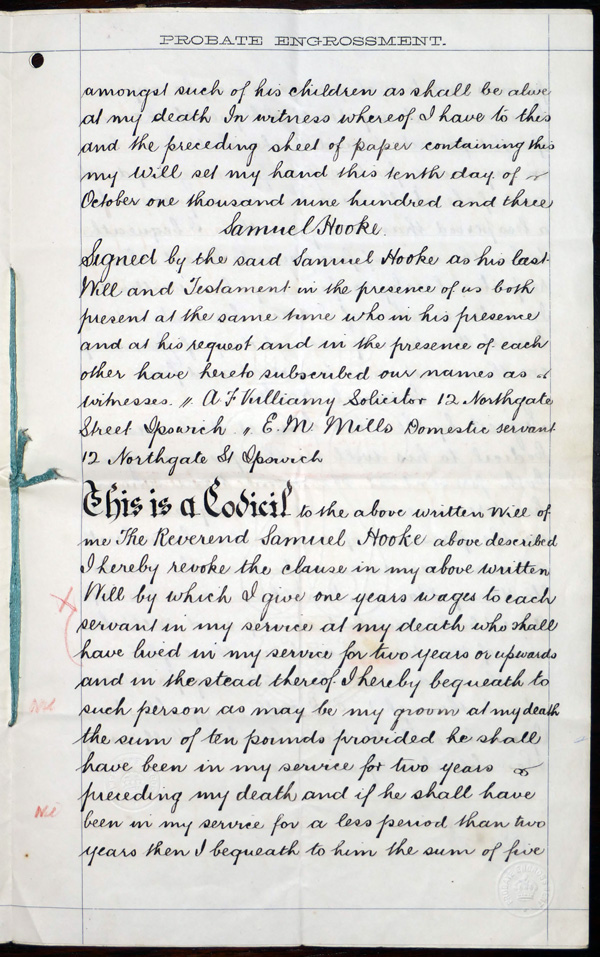 PROBATE ENGROSSMENT.
amongst such of his children as shall be alive
at my death In witness whereof I have to this
and the preceding sheet of paper containing this
my Will set my hand this tenth day of
October one thousand nine hundred and three
Samuel Hooke.
Signed by the said Samuel Hooke as his last
Will and Testament in the presence of us both
present at the same time who in his presence
and at his request and in the presence of each
other have hereto subscribed our names as
witnesses. ,, A F Vulliamy Solicitor 12 Northgate
Street Ipswich ,, E. M. Mills Domestic servant
12 Northgate St Ipswich
This is a Codicil to the above written Will of
me The Reverend Samuel Hooke above described
I hereby revoke the clause in my above written
Will by which I give one years wages to each
servant in my service at my death who shall
have lived in my service for two years or upwards
and in the stead thereof I hereby bequeath to
such person as may be my groom at my death
the sum of ten pounds provided he shall
have been in my service for two years
preceding my death and if he shall have
been in my service for a less period than two
years then I bequeath to him the sum of five